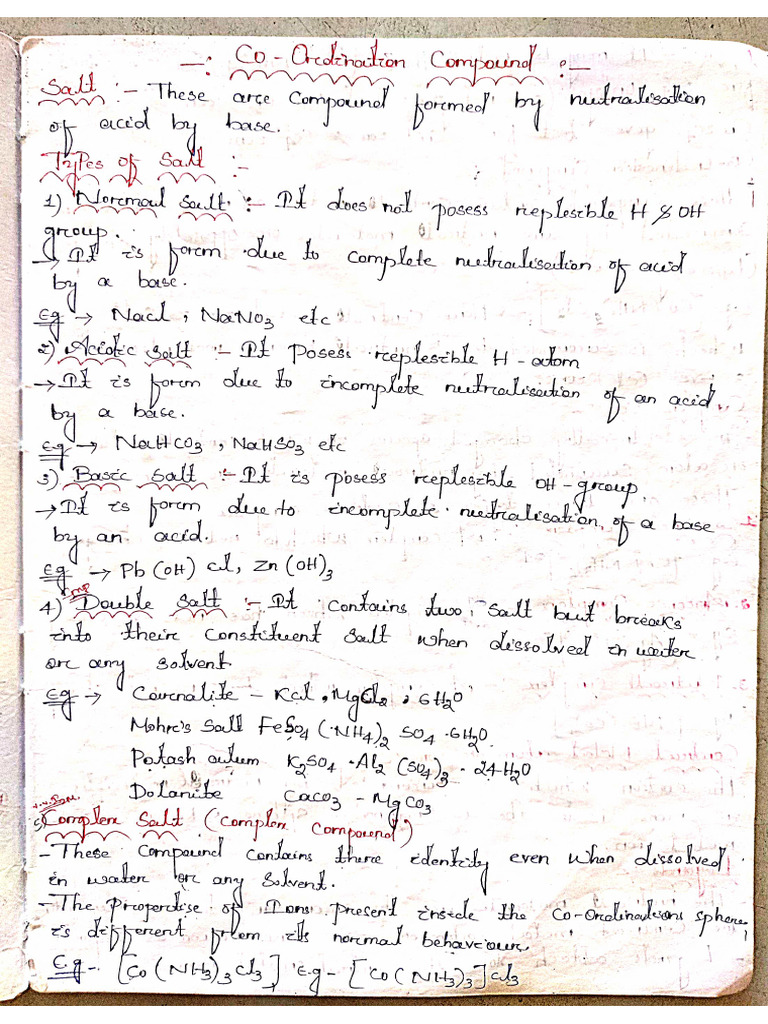 —: Co-Ordination Compound :—
Salt :- These are Compound formed by nutrialisation
of acid by base.
Types of Salt :-
1) Normal salt :- It does not posess replesible H & OH
group.
→ It is form due to complete nutralisation of acid
by a base.
Eg → Nacl, NaNO3 etc
2) Acidic salt :- It posess replesible H-atom
→ It is form due to incomplete nutralisation of an acid
by a base.
Eg → NaHCO3, NaHSO3 etc
3) Basic Salt :- It is posess replesible OH-group
→ It is form due to incomplete nutralisation of a base
by an acid.
Eg → Pb(OH)cl, Zn(OH)3
Imp
4) Double Salt :- It contains two, salt but breaks
into their Constituent Salt when dissolved in water
or any solvent
Eg → Carnalite - Kcl, MgCl2, 6H2O
Mohr's Salt FeSO4(NH4)2 SO4 .6H2O.
Potash alum K2SO4 . Al2(SO4)3 . 24H2O
Dolamite CaCO3 - MgCO3
v.v. Imp.
5) Complex Salt (complex compound)
- These Compound contains there identity even when dissolved
in water or any solvent.
- The Properdise of Ions present inside the Co-Ordinations sphere
is different from its normal behaviour.
Eg - [Co(NH3)3Cl3] , Eg - [Co(NH3)3]Cl3